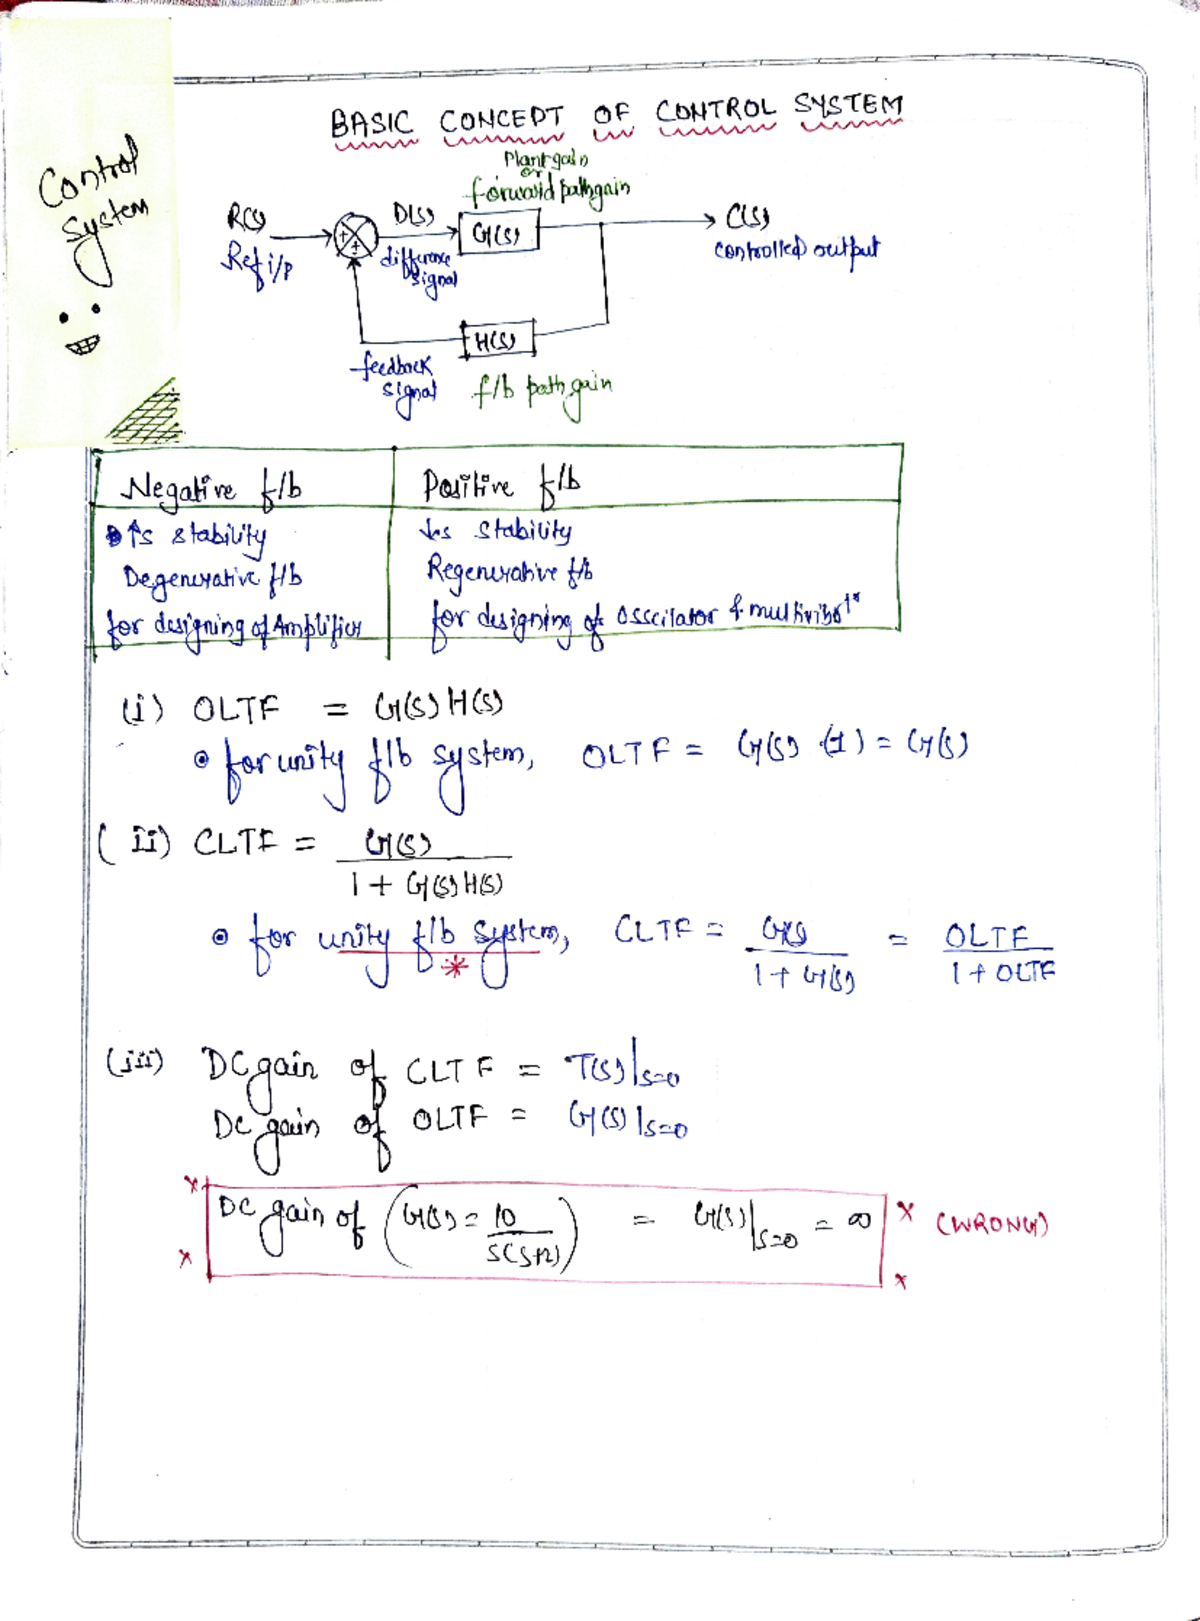 Control
system
BASIC CONCEPT OF CONTROL SYSTEM
Plant gain
or
forward path gain
R(s)
D(s)
G(s)
C(s)
Ref i/p
difference
signal
controlled output
+
±
H(s)
feedback
signal
f/b path gain
Negative f/b
Positive f/b
↑s stability
↓es stability
Degenerative f/b
Regenerative f/b
for designing of Amplifier
for designing of Osscilator & multivibrs
(i) OLTF = G(s) H(s)
for unity f/b system, OLTF = G(s) (1) = G(s)
(ii) CLTF = G(s) / 1 + G(s) H(s)
for unity f/b system, CLTF = G(s) / 1 + G(s) = OLTF / 1 + OLTF
*
(iii) DC gain of CLTF = T(s)|s=0
DC gain of OLTF = G(s)|s=0
DC gain of (G(s) = 10 / s(s+2)) = G(s)|s=0 = ∞ x (WRONG)